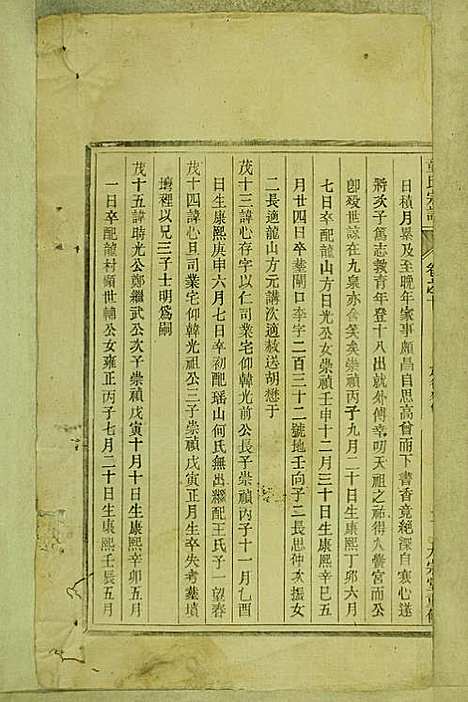 日積月累及至晚年家事頗昌自思高曾而下書香竟絕深自寒心遂
將次子篤志敦青年登十八出就外傅幸叨天祖之祐得入黌宮而公
卽歿世諒在九泉亦含笑矣崇禎丙子九月二十日生康熙丁卯六月
七日卒配龍山方日光公女崇禎壬申十二月三十日生康熙辛巳五
月廿四日卒葬閘口李字二百三十二號地壬向子二長思仲次振女
二長適龍山方元講次適赦送胡懋于
茂十三諱心存字以仁司業宅仰韓光前公長子崇禎丙子十一月乙酉
日生康熙庚申六月七日卒初配瑤山何氏無出繼配王氏子一望春
茂十四諱心旦司業宅仰韓光祖公三子崇禎戊寅正月生卒失考葬墳
塘裡以兄三子士明爲嗣
茂十五諱時光公鄭繼武公次子崇禎戊寅十月十日生康熙辛卯五月
一日卒配龍村顯世輔公女雍正丙子七月二十日生康熙壬辰五月